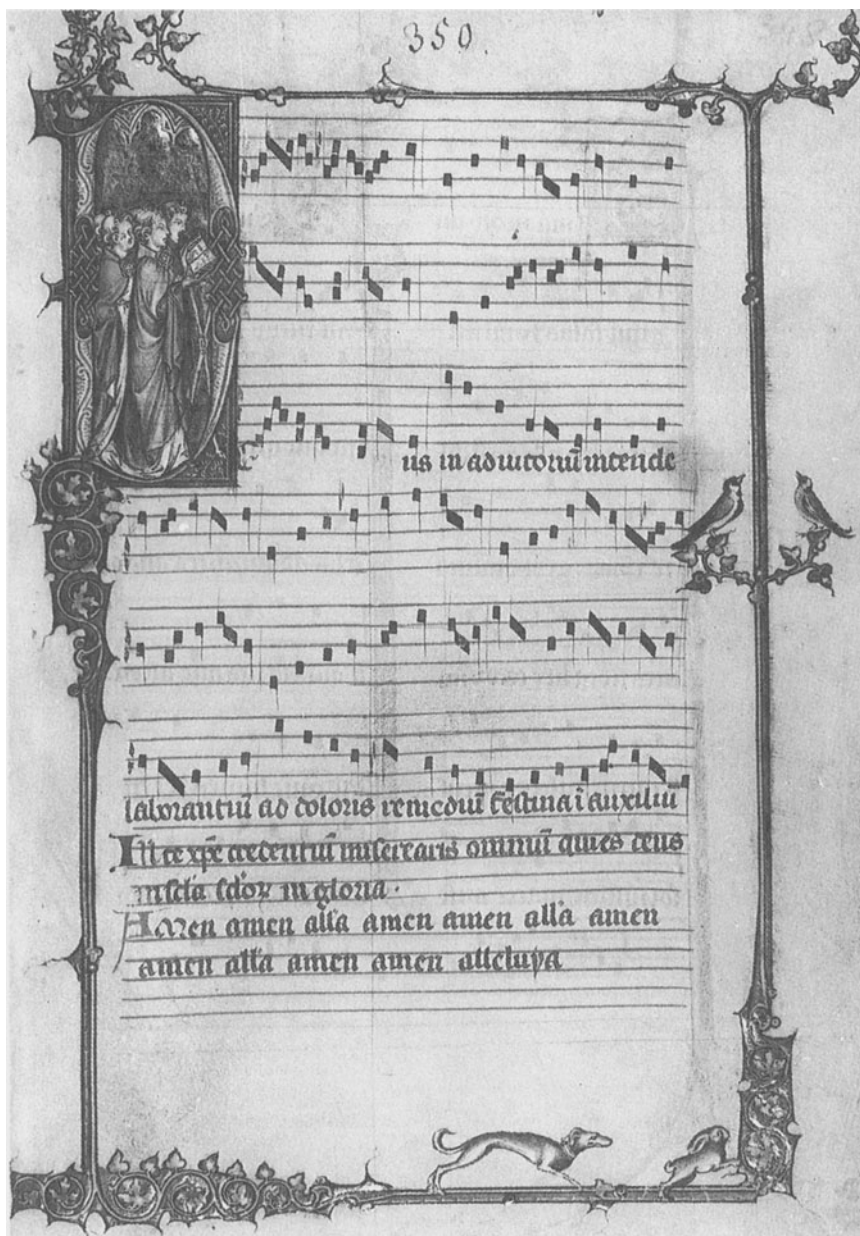 350.
us in adiutoriū intende
laborantiū ad doloris remediū festina ī auxiliū
In te xp̄e credentiū miserearis omniū qui es deus
in sc̄la sc̄lor̄ in gloria.
Amen amen all̄a amen amen all̄a amen
amen all̄a amen amen alleluya